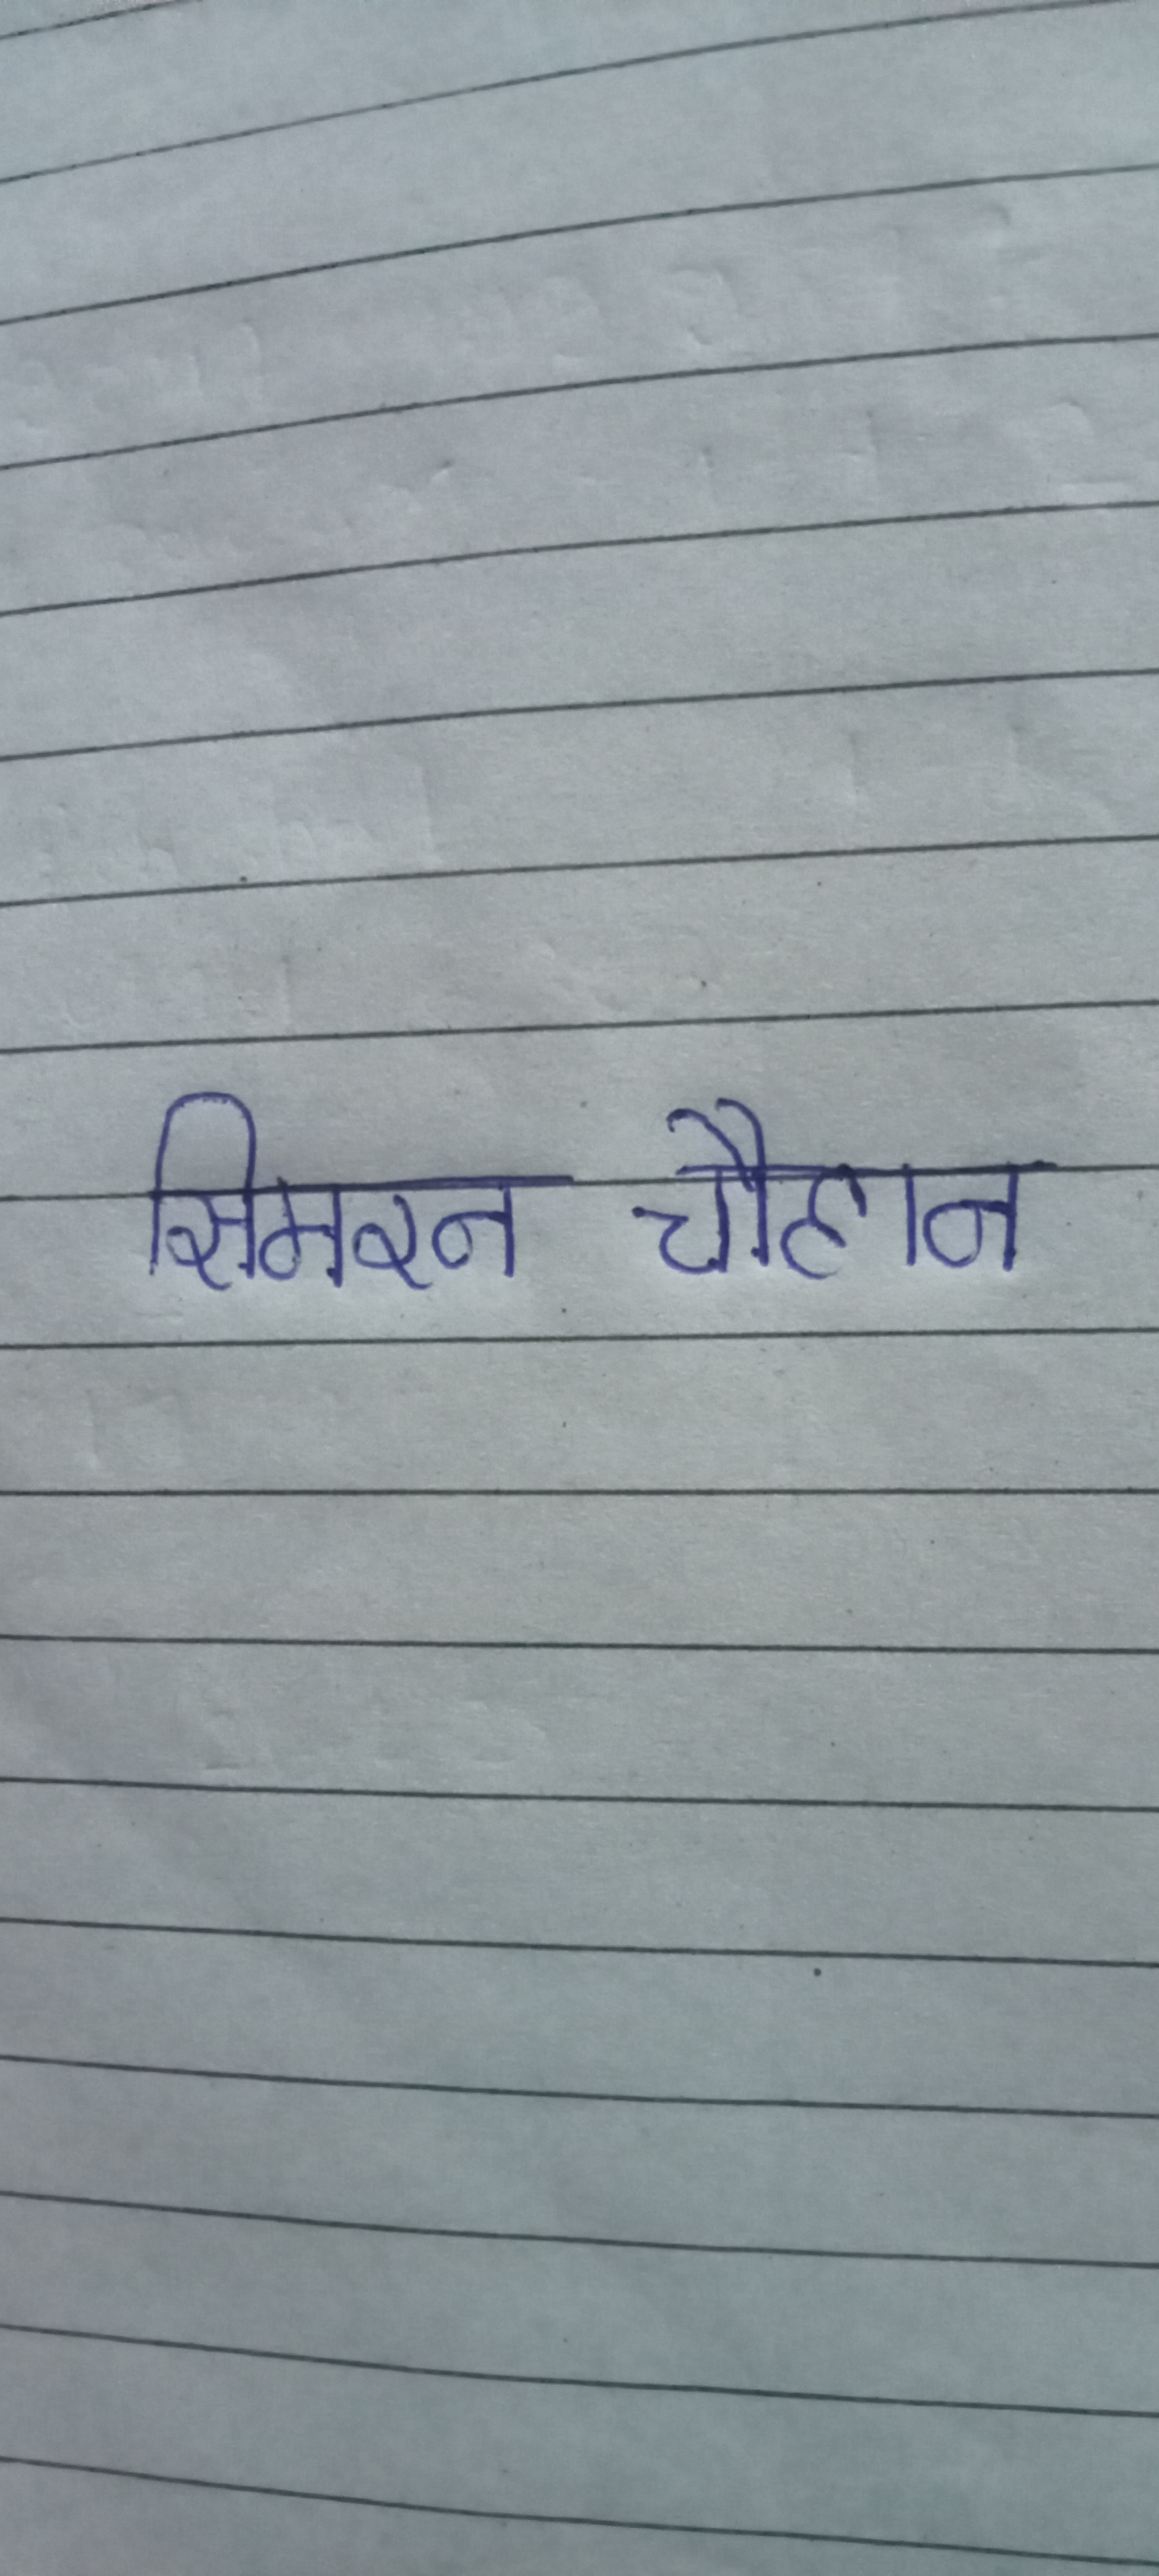 सिमरन चौहान